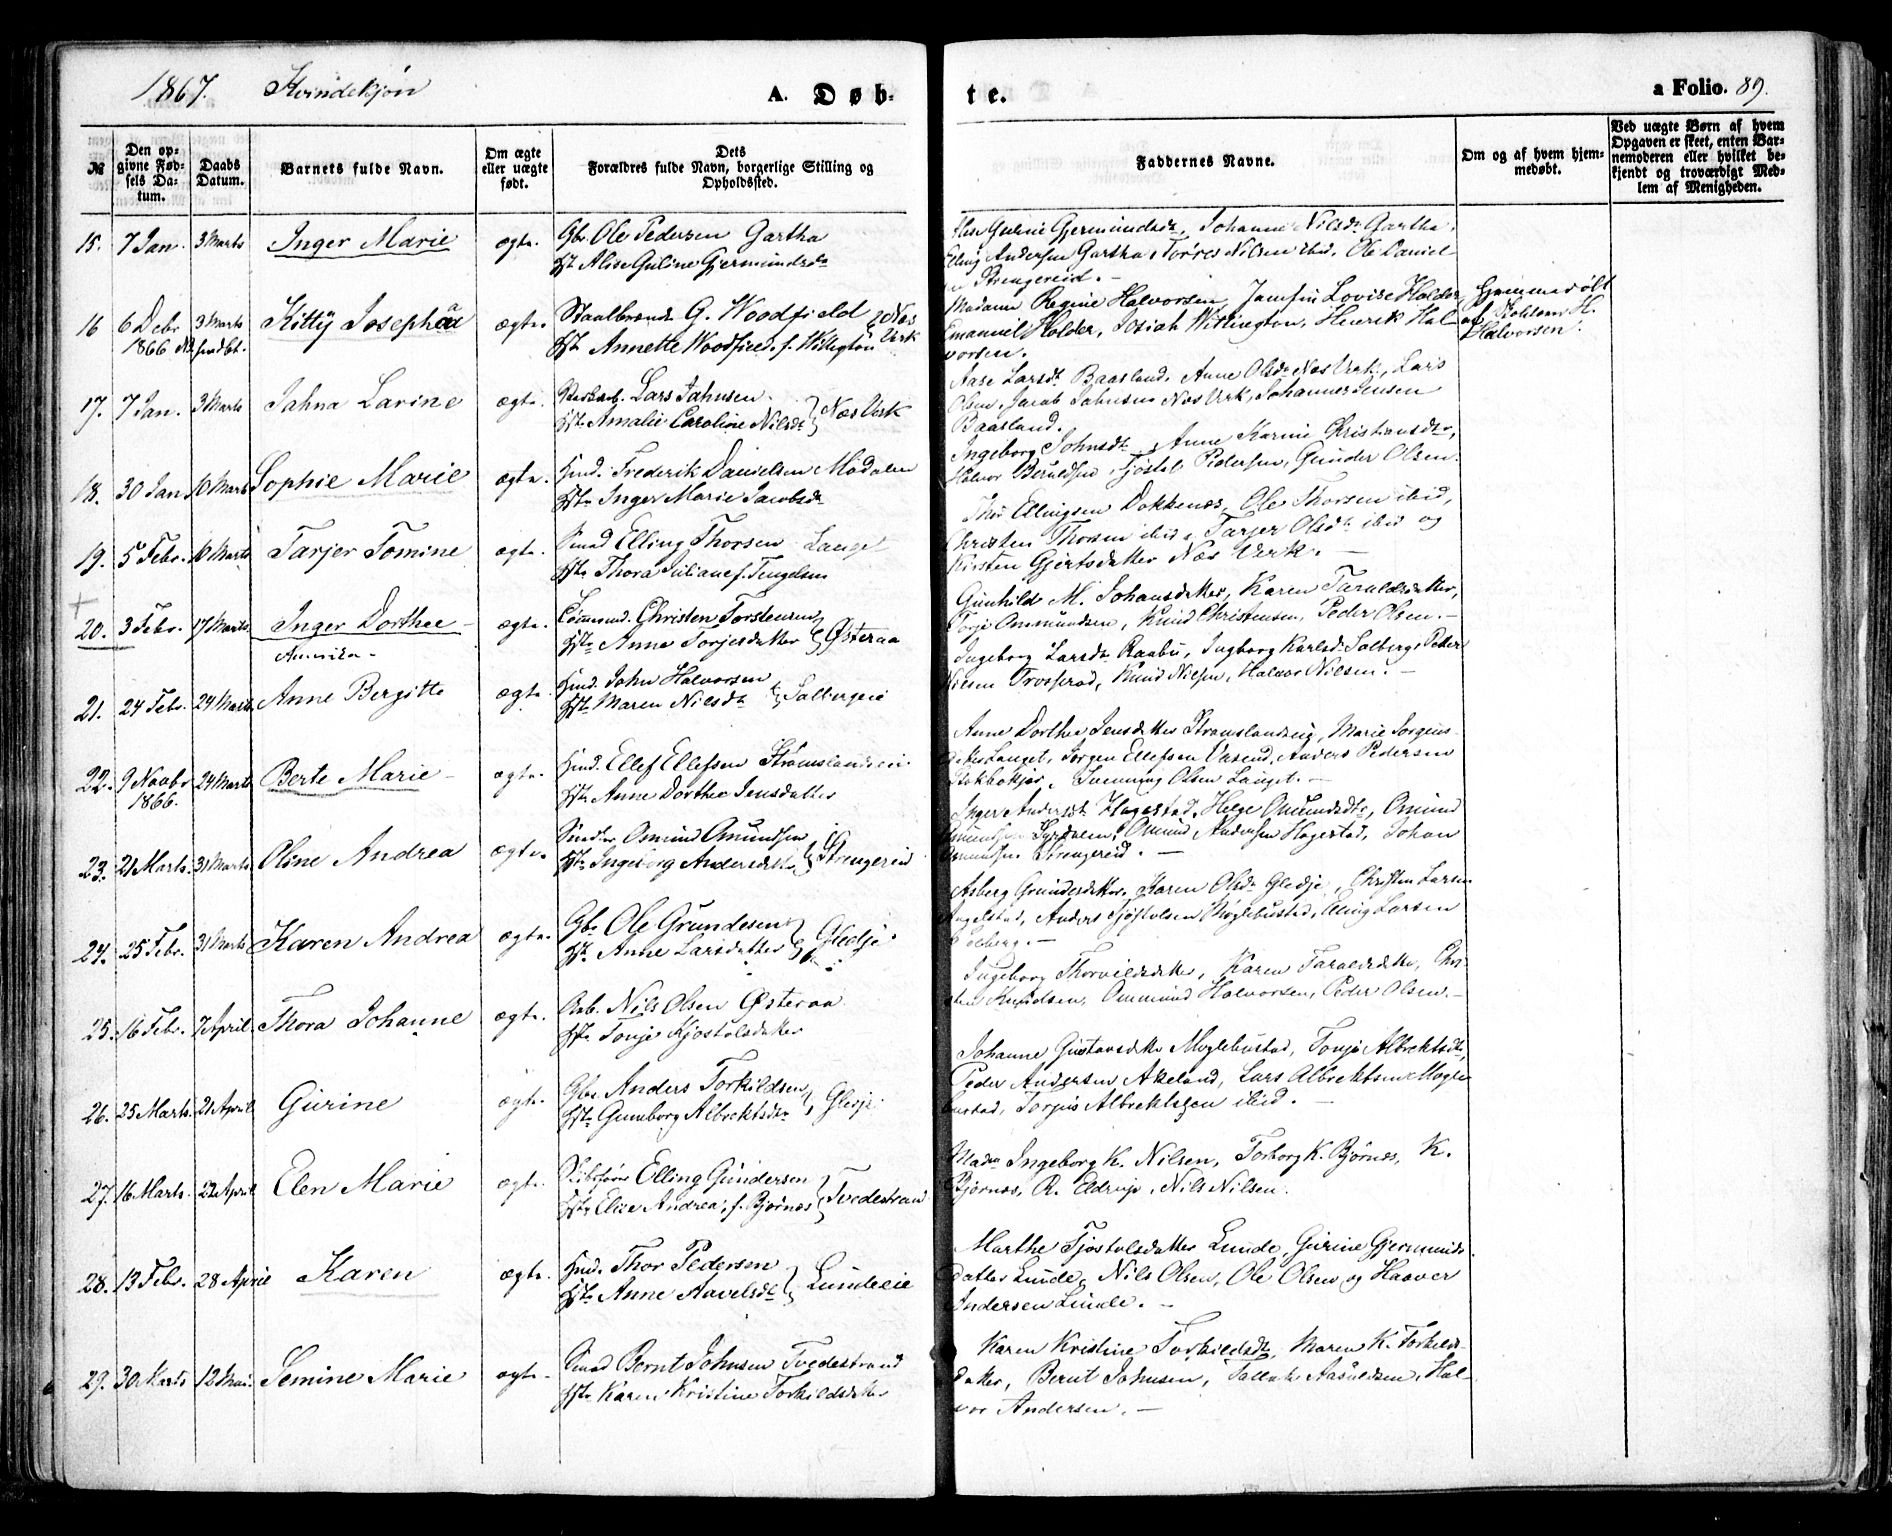 1867. Kvindekjøn A. Døb- te. a Folio. 89.
№
Den op-
givne Fød-
sels Da-
tum.
Daabs
Datum.
Barnets fulde Navn.
Om ægte
eller uægte
født.
Dets
Forældres fulde Navn, borgerlige Stilling og
Opholdssted.
Faddernes Navne.
Om og af hvem hjem-
medøbt.
Ved uægte Børn af hvem
Opgaven er skeet, enten Bar-
nemoderen eller hvilket be-
kjendt og troværdigt Med-
lem af Menigheden.
15. 7 Jan. 3 Marts Inger Marie ægte. Gbr. Ole Pedersen Gartha
Alise Guline Gjermundsdr
Guline Gjermundsdr, Johanne Nilsdr Gartha,
Elling Andersen Gartha, Torres Nilsen ibid, Ole Daniel-
Strengereid. -
16 6 Debr 3 Marts Kitty Josepha ægte. G. Woodfield Næs
1866 Annette Woodfield f. Verk
Madame Regine Halvorsen, Lovise Holder,
Emanuel Holder, Josiah Witlington, Henrik Hal-
vorsen.
Hjemmedøbt
af H.
Halvorsen.
17. 7 Jan. 3 Marts Jahna Larine ægte. Lars Jahnsen Næs Verk
Amalie Caroline Nilsdr
Aase Larsdr Baasland, Anne Olsdr Næs Verk, Lars
Olsen, Jacob Jahnsen Næs Verk, Johannes Jensen
Baasland.
18. 30 Jan 10 Marts Sophie Marie ægte. Hmd. Frederik Danielsen Modalen
Inger Marie Jacobsdr
Ingeborg Johnsdr, Anne Karine Christensdr,
Halvor Tjøstel Pedersen, Gunder Olsen.
19. 5 Febr. 10 Marts Tarjer Tomine ægte. Smed Elling Thorsen Langet
Thora Juliane f. Tengelsen
Thor Ellingsen Dokkenæs, Ole Thorsen ibid,
Christen Thorsen ibid, Tarjer Olsdr ibid og
Kirsten Gjertsdatter Næs Verk. -
20. 3 Febr. 17 Marts Inger Dorthee ægte. Christen Torstensen Østeraa
Amerika - Anne Torjesdatter
Gunhild M. Johansdatter, Karen Taraldsdatter,
Torje Ommundsen, Knud Christensen, Peder Olsen. -
21. 24 Febr. 24 Marts Anne Bergitte ægte. Hmd. John Halvorsen Solbergeie
Maren Nilsdr
Ingeborg Larsdr Raabu, Ingborg Karlsdr Solberg, Peder
Nielsen Trosserod, Knud Nielsen, Halvor Nilsen. -
22. 9 Novbr 24 Marts Berte Marie ægte. Hmd. Ellef Ellefsen Strømslandseie
1866. Anne Dorthea Jensdatter
Anne Dorthea Jensdatter Strømslandseie, Marie Jørgens-
datter Langet, Jørgen Ellefsen Anders Pedersen
Svenning Olsen Langet. -
23. 21 Marts 31 Marts Oline Andrea ægte. Osmund Omundsen Strengereid
Ingeborg Andersdatter
Inger Andersdr Hagestad, Helge Omundsdr, Omund
Omund Andersen Hagestad, Johan
Strengereid. -
24. 25 Febr. 31 Marts Karen Andrea ægte. Gbr. Ole Gundesen Gledje
Anne Larsdatter
Asberg Gundersdatter, Karen Olsdr Gledje, Christen Larsen
Anders Tjøstolsen Møglebustad, Elling Larsen
25. 16 Febr. 7 April Thora Johanne ægte. Arb. Nils Olsen Østeraa
Tonje Kjostolsdatter
Ingeborg Thorvildsdatter, Karen Taraldsdatter, Chri-
sten Knudsen, Ommund Halvorsen, Peder Olsen. -
26. 25 Marts. 21 April Gurine ægte. Gbr. Anders Torkildsen Gledje
Gunborg Albrektsdr
Johanne Gustavsdatter Moglebustad, Tonje Albrektsdr,
Peder Andersen Akeland, Lars Albrektsen Mogle-
bustad, Torjus Albrektsen ibid. -
27. 16 Marts. 22 April Elen Marie ægte. Elling Gundersen Tvedestrand
Elise Andrea, f. Bjørnæs
Madm Ingeborg K. Nilsen, Torborg K. Bjørnæs, K.
Bjørnæs, R. Eldrup, Nils Nilsen.
28. 13 Febr. 28 April Karen ægte. Hmd. Thor Pedersen Lundeeie
Anne Aavelsdr
Marthe Tjostolsdatter Lunde, Gurine Gjermunds-
datter Lunde, Nils Olsen, Ole Olsen og Haaver
Andersen Lunde. -
29. 30 Marts 12 Mai. Semine Marie ægte. Smed Bernt Johnsen Tvedestrand
Karen Kristine Torkildsdatter
Karen Kristine Torkildsdr, Maren K. Torkilds-
datter, Bernt Johnsen, Tallak Aasuldsen, Hal-
vor Andersen. -